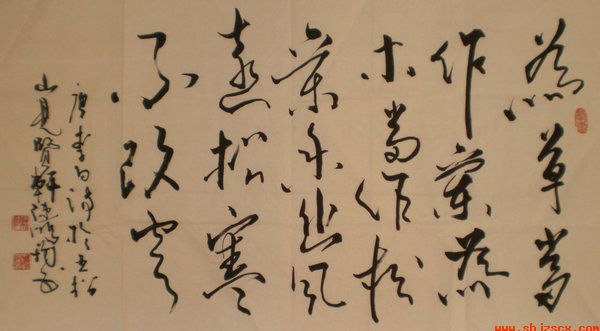 為草當
作蘭為
木當作松
蘭幽風
遠松寒
不改容
唐李白詩於五松
山見賢軒
www.shizscx.com